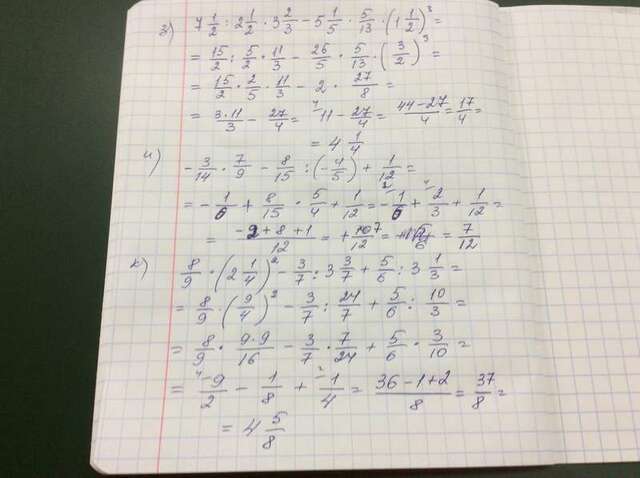 з) 7 1/2 : 2 1/2 · 3 2/3 - 5 1/5 · 5/13 · (1 1/2)^3 =
= 15/2 : 5/2 · 11/3 - 26/5 · 5/13 · (3/2)^3 =
= 15/2 · 2/5 · 11/3 - 2 · 27/8 =
= 3·11/3 - 27/4 = 11 - 27/4 = 44-27/4 = 17/4 =
= 4 1/4
и) - 3/14 · 7/9 - 8/15 : (- 4/5) + 1/12 =
= - 1/6 + 8/15 · 5/4 + 1/12 = - 1/6 + 2/3 + 1/12 =
= -2+8+1/12 = = 7/12
к) 8/9 · (2 1/4)^2 - 3/7 : 3 3/7 + 5/6 : 3 1/3 =
= 8/9 · (9/4)^2 - 3/7 : 24/7 + 5/6 : 10/3 =
= 8/9 · 9·9/16 - 3/7 · 7/24 + 5/6 · 3/10 =
= 9/2 - 1/8 + 1/4 = 36-1+2/8 = 37/8 =
= 4 5/8